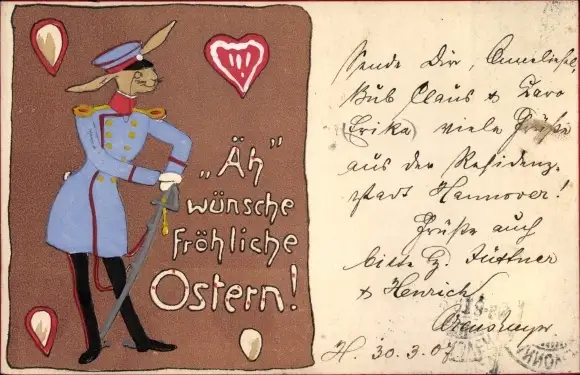 „Äh"
wünsche
fröhliche
Ostern!
Sende Dir, Anneliesel,
Bub Claus & Caro
(Erika) viele Grüße
aus der Residenz-
stadt Hannover!
Grüße auch
bitte Hz. Füttner
& Henrich
H. 30.3.07